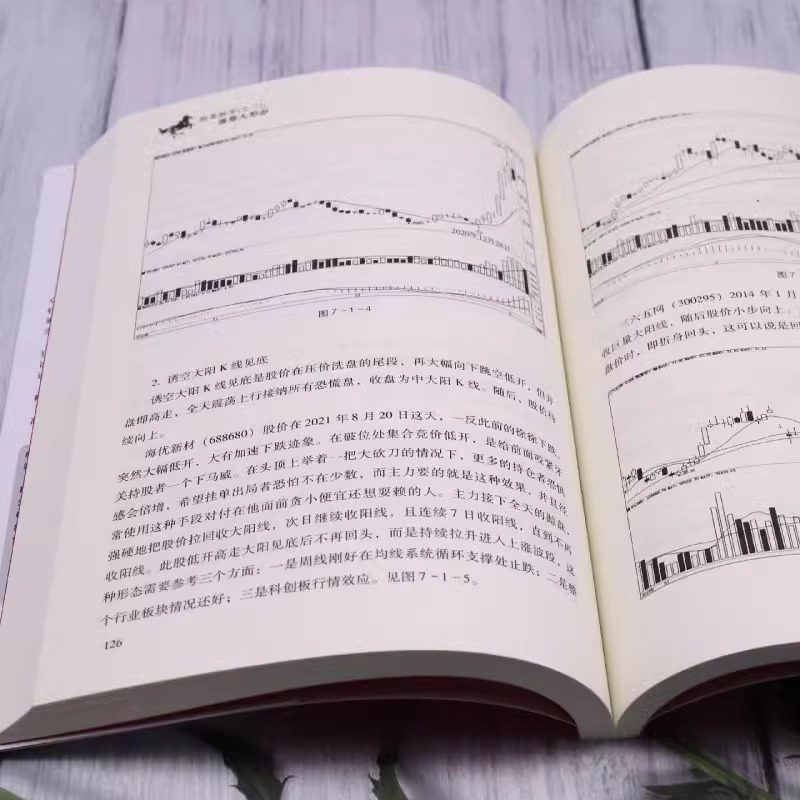 2020年12月28日
图 7-1-4
2. 诱空大阳 K 线见底
诱空大阳 K 线见底是股价在压价洗盘的尾段，再大幅向下跳空低开，但开
盘即高走，全天震荡上行接纳所有恐慌盘，收盘为中大阳 K 线。随后，股价持
续向上。
海优新材（688680）股价在 2021 年 8 月 20 日这天，一反此前的徐徐下跌，
突然大幅低开，大有加速下跌迹象。在破位处集合竞价低开，是给前面咬紧牙
关持股者一个下马威。在头顶上举着一把大砍刀的情况下，更多的持仓者恐惧
感会倍增，希望挂单出局者恐怕不在少数，而主力要的就是这种效果，并且经
常使用这种手段对付在他面前贪小便宜还想要赖的人。主力接下全天的抛盘，
强硬地把股价拉回收大阳线，次日继续收阳线，且连续 7 日收阳线，直到不再
收阳线。此股低开高走大阳见底后不再回头，而是持续拉升进入上涨波段，这
种形态需要参考三个方面：一是周线刚好在均线系统循环支撑处止跌；二是整
个行业板块情况还好；三是科创板行情效应。见图 7-1-5。
126
图 7
三六五网（300295）2014 年 1 月
收巨量大阳线，随后股价小步向上。
盘价时，即折身回头，这可以说是回